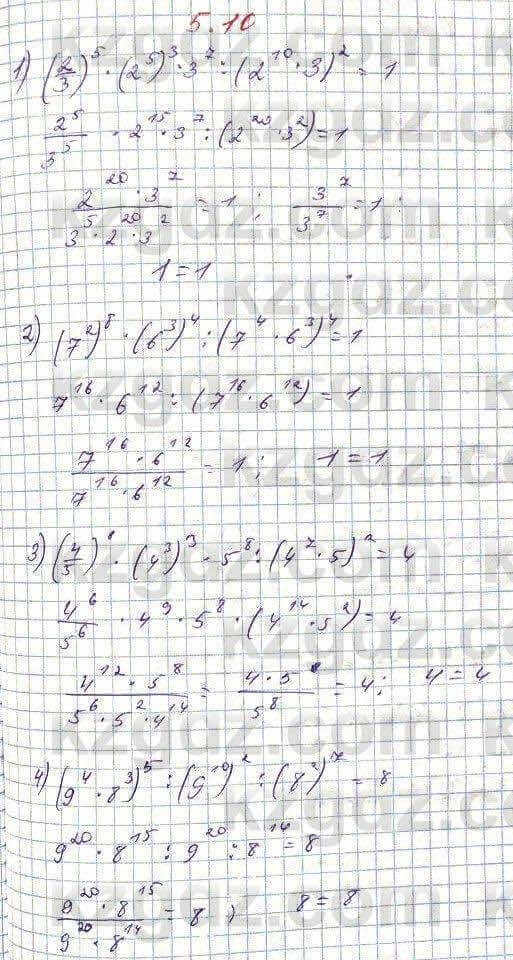 5.10
1) (2/3)^5 · (2^5)^3 · 3^7 : (2^10 · 3)^2 = 1
2^5/3^5 · 2^15 · 3^7 : (2^20 · 3^2) = 1
(2^20 · 3^7)/(3^5 · 2^20 · 3^2) = 1; 3^7/3^7 = 1;
1 = 1
2) (7^2)^8 · (6^3)^4 : (7^4 · 6^3)^4 = 1
7^16 · 6^12 : (7^16 · 6^12) = 1
(7^16 · 6^12)/(7^16 · 6^12) = 1; 1 = 1
3) (4/5)^6 · (4^3)^3 · 5^8 : (4^7 · 5)^2 = 4
4^6/5^6 · 4^9 · 5^8 · (4^14 · 5^2) = 4
(4^12 · 5^8)/(5^6 · 5^2 · 4^14) = (4 · 5^8)/5^8 = 4; 4 = 4
4) (9^4 · 8^3)^5 : (9^10)^2 : (8^2)^7 = 8
9^20 · 8^15 : 9^20 : 8^14 = 8
(9^20 · 8^15)/(9^20 · 8^14) = 8; 8 = 8
kzgdz.com